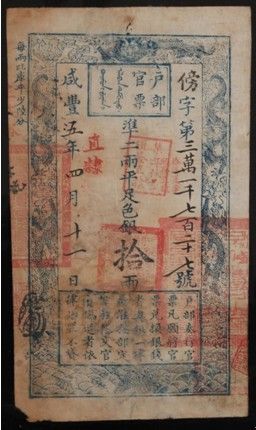 户部
官票
傍字第三萬一千七百二十七號
準二兩平足色銀拾兩
直隸
咸豐五年四月十一日
每兩比庫平少陸分
户部奏行官
票凡願將官
票兌換銀錢
者與銀一律
並准按部定
章程搭交官
項偽造者依
律治罪不貸